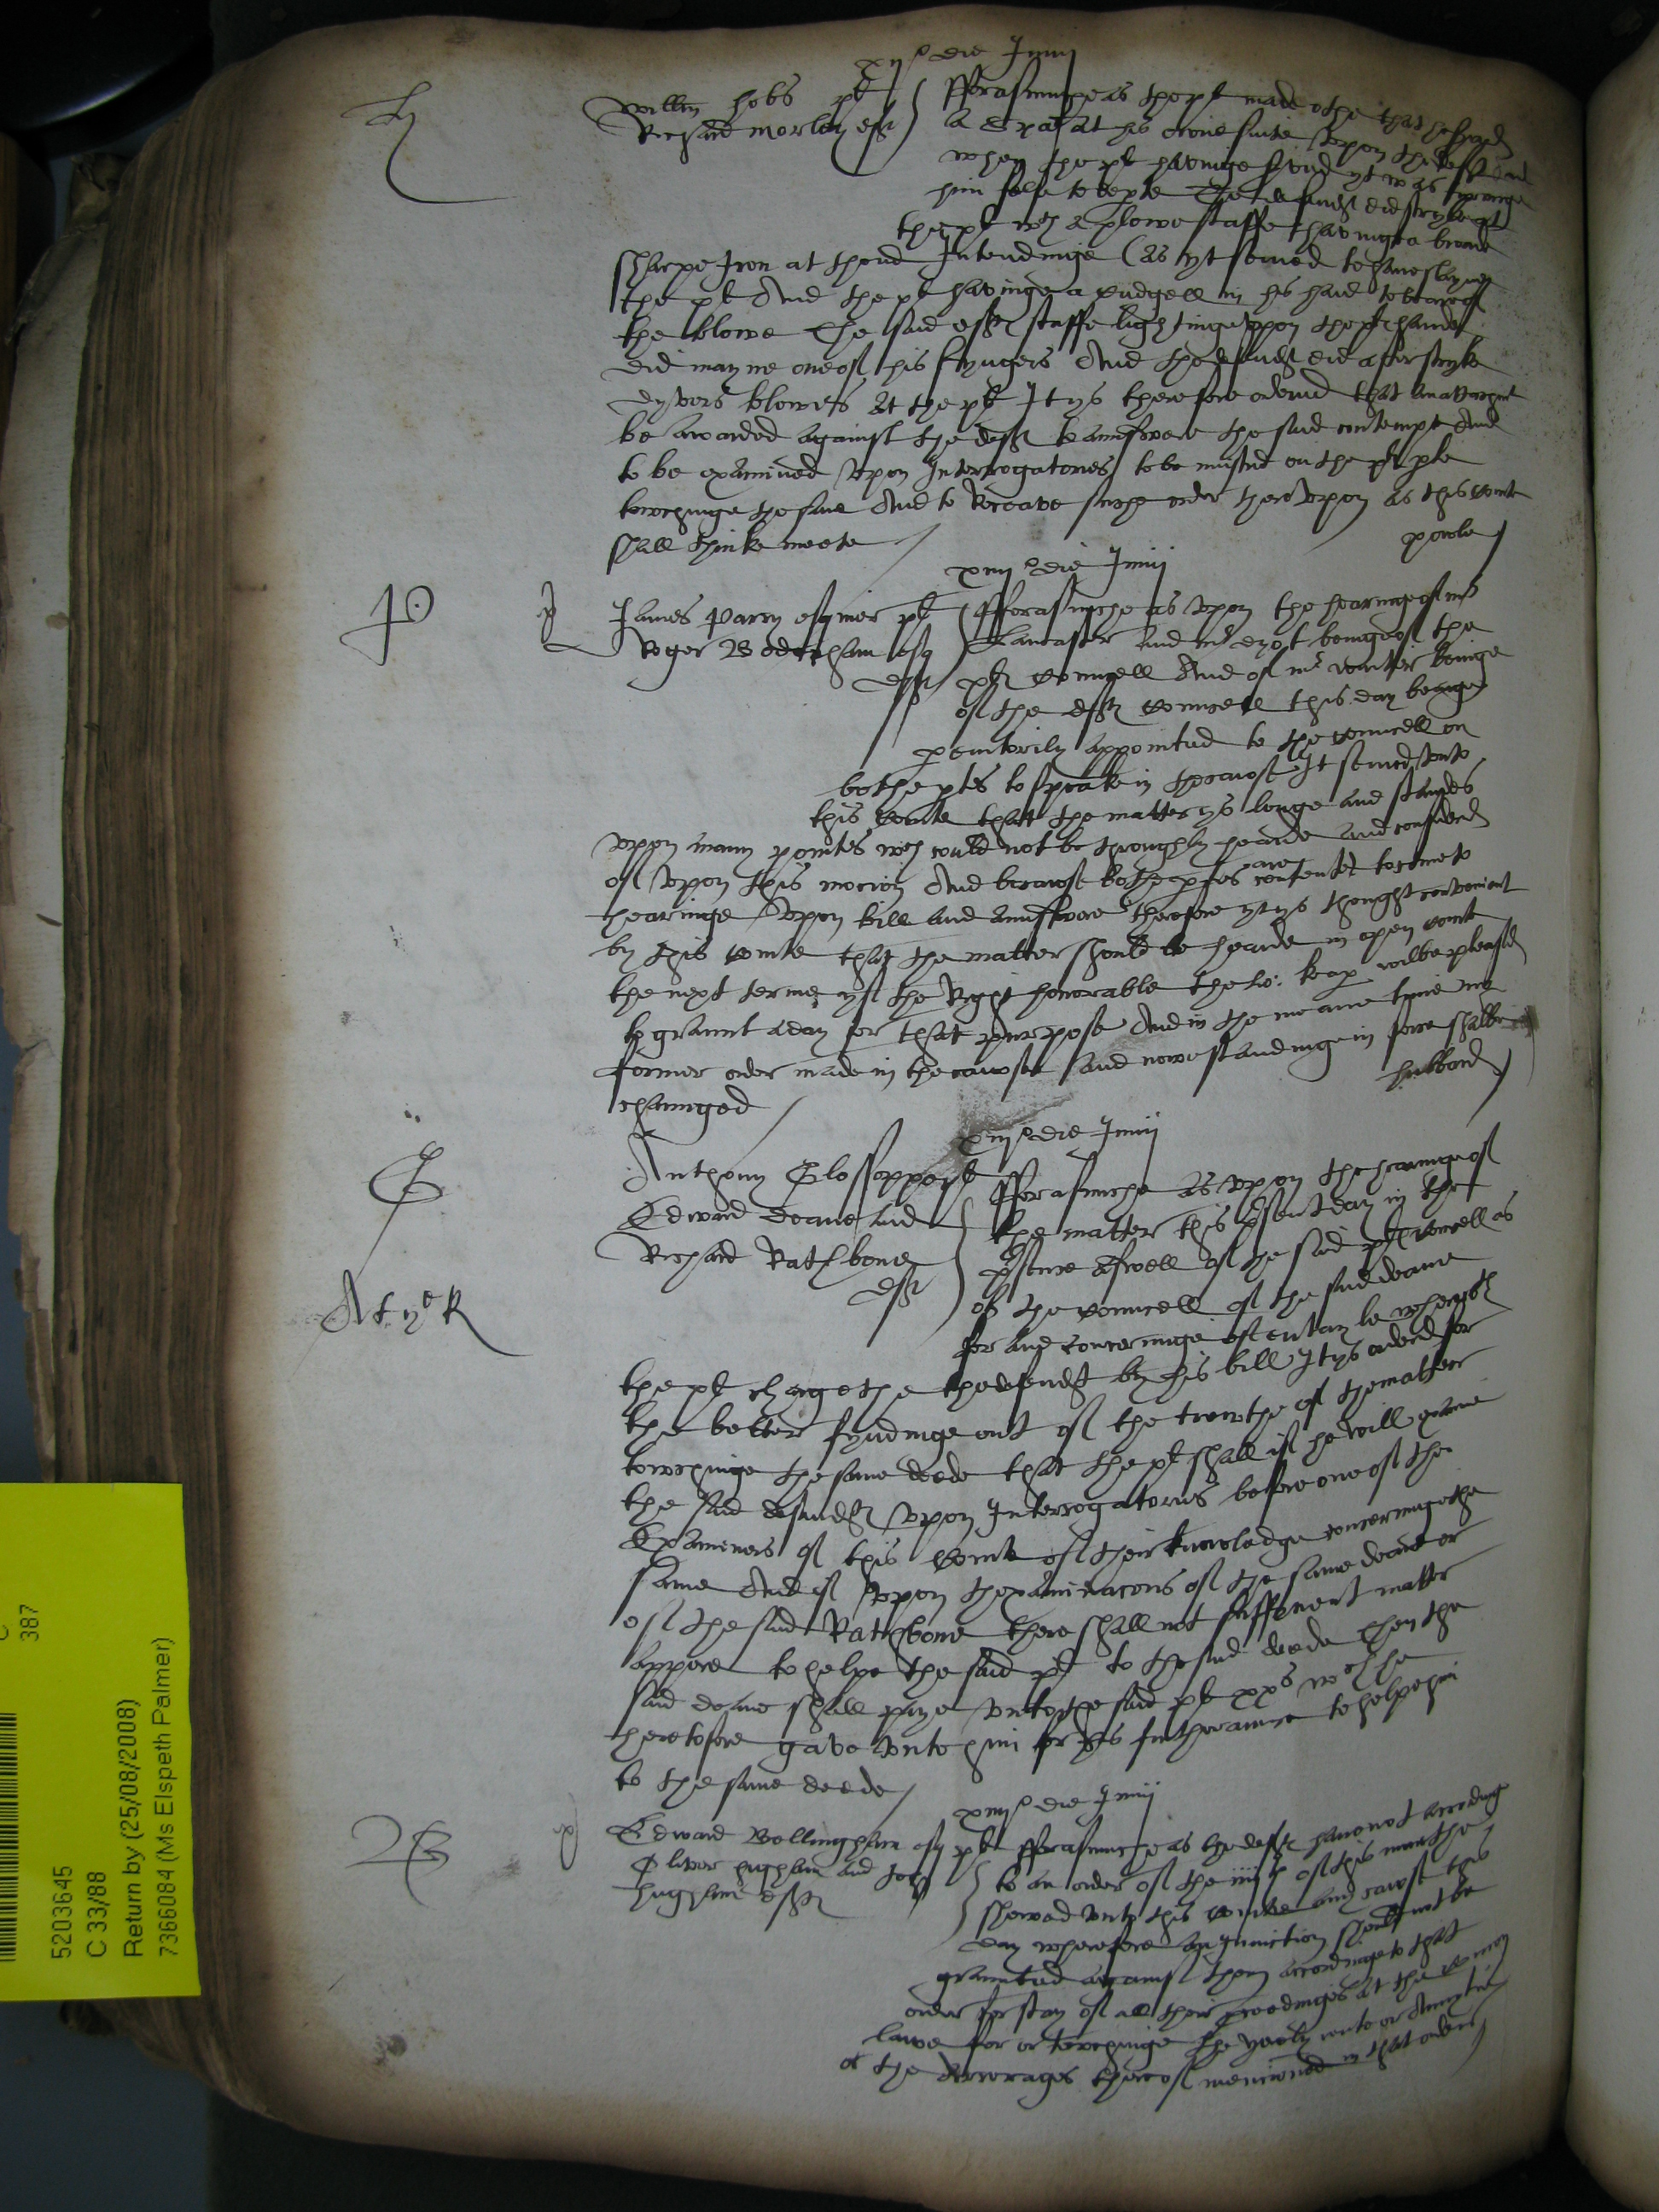 xiij° die Junij
H
Willm hobs pl
Richard Morley deft
fforasmuche as the pl made othe that he served
a at his owne suite vpon the deft and
when the pl havinge served yt was
him selfe to dep(te) the defendt did stryke at
the pl wth a plowe staffe havinge a broade
sharpe Iron at thend Intendinge (as yt semed to have slayne
the pl And the pl havinge a cudgell in his hand to beare of
the blowe The said deftes staffe lightinge vpon the pl hande
did mayme one of his fyngers And the defendt did after stryke
dyvers blowes at the pl It ys therefore ordered that an attachmt
be awarded against the deft to aunswere the said contempt And
to be examined vpon Interrogatories to be mistred on the pl pte
towchinge the same And to Receave suche order therevpon as this courte
shall thinke meete
powle
xiiij° die Junij
P
James Parry esquier pl
Roger Bodenham esq
deft
fforasmuche as vpon the hearinge of mr
Lancaster and mr beinge of the
pl councell And of mr beinge
of the deftes councell this day beinge
peremtorily appointed to the councell on
bothe ptes to speake in the cause It semed vnto
this courte that the matter ys longe and standes
vpon many pointes wch could not be throughly hearde and considered
of vpon this mocion And because bothe ptes are contented to come to
hearinge vpon bill and aunswere therefore yt ys thought convenient
by this courte that the matter should be hearde in open courte
the next terme yf the Right honorable the lo: keap wilbe pleased
to graunt a day for that purpose And in the meane tyme no
former order made in the cause and nowe standinge in force shalbe
chaunged
hubbard
xiiij° die Junij
G
At ye R
Anthony Glossoppe pl
Edward Deane and
Richard Rathbone
deft
fforasmuche as vpon the hearinge of
the matter this psent day in the
psence aswell of the said pl councell as
of the councell of the said deane
for and concerninge of entayle wherewth
the pl chargethe the defendt by his bill It ys ordered for
the better fyndinge out of the trowthe of the matter
towchinge the same deede that the pl shall if he will examine
the said defendtes vpon Interrogatories before one of the
Examiners of this courte of their knowledge concerninge the
same And if vpon thexaminacons of the same deane or
of the said Rathbone there shall not sufficient matter
appere to helpe the said pl to the said deede Then the
said deane shall paye vnto the said pl xxs wch he
heretofore gave vnto him for his furtherance to helpe him
to the same deede
xiiij° die Junij
B
Edward Bellingham esq pl
Oliver hugham and John
hugham deftes
fforasmuche as the deftes have not accordinge
to an order of the iiijth of this monethe
shewed vnto this courte any cause this
day wherefore an Iniunction should not be
graunted against them accordinge to that
order for stay of all their proceedinges at the comon
lawe for or towchinge the yearly rente or Annuytie
or the Arrerages thereof mencioned in that order
C
387
5203645
C 33/88
Return by (25/08/2008)
7366084 (Ms Elspeth Palmer)